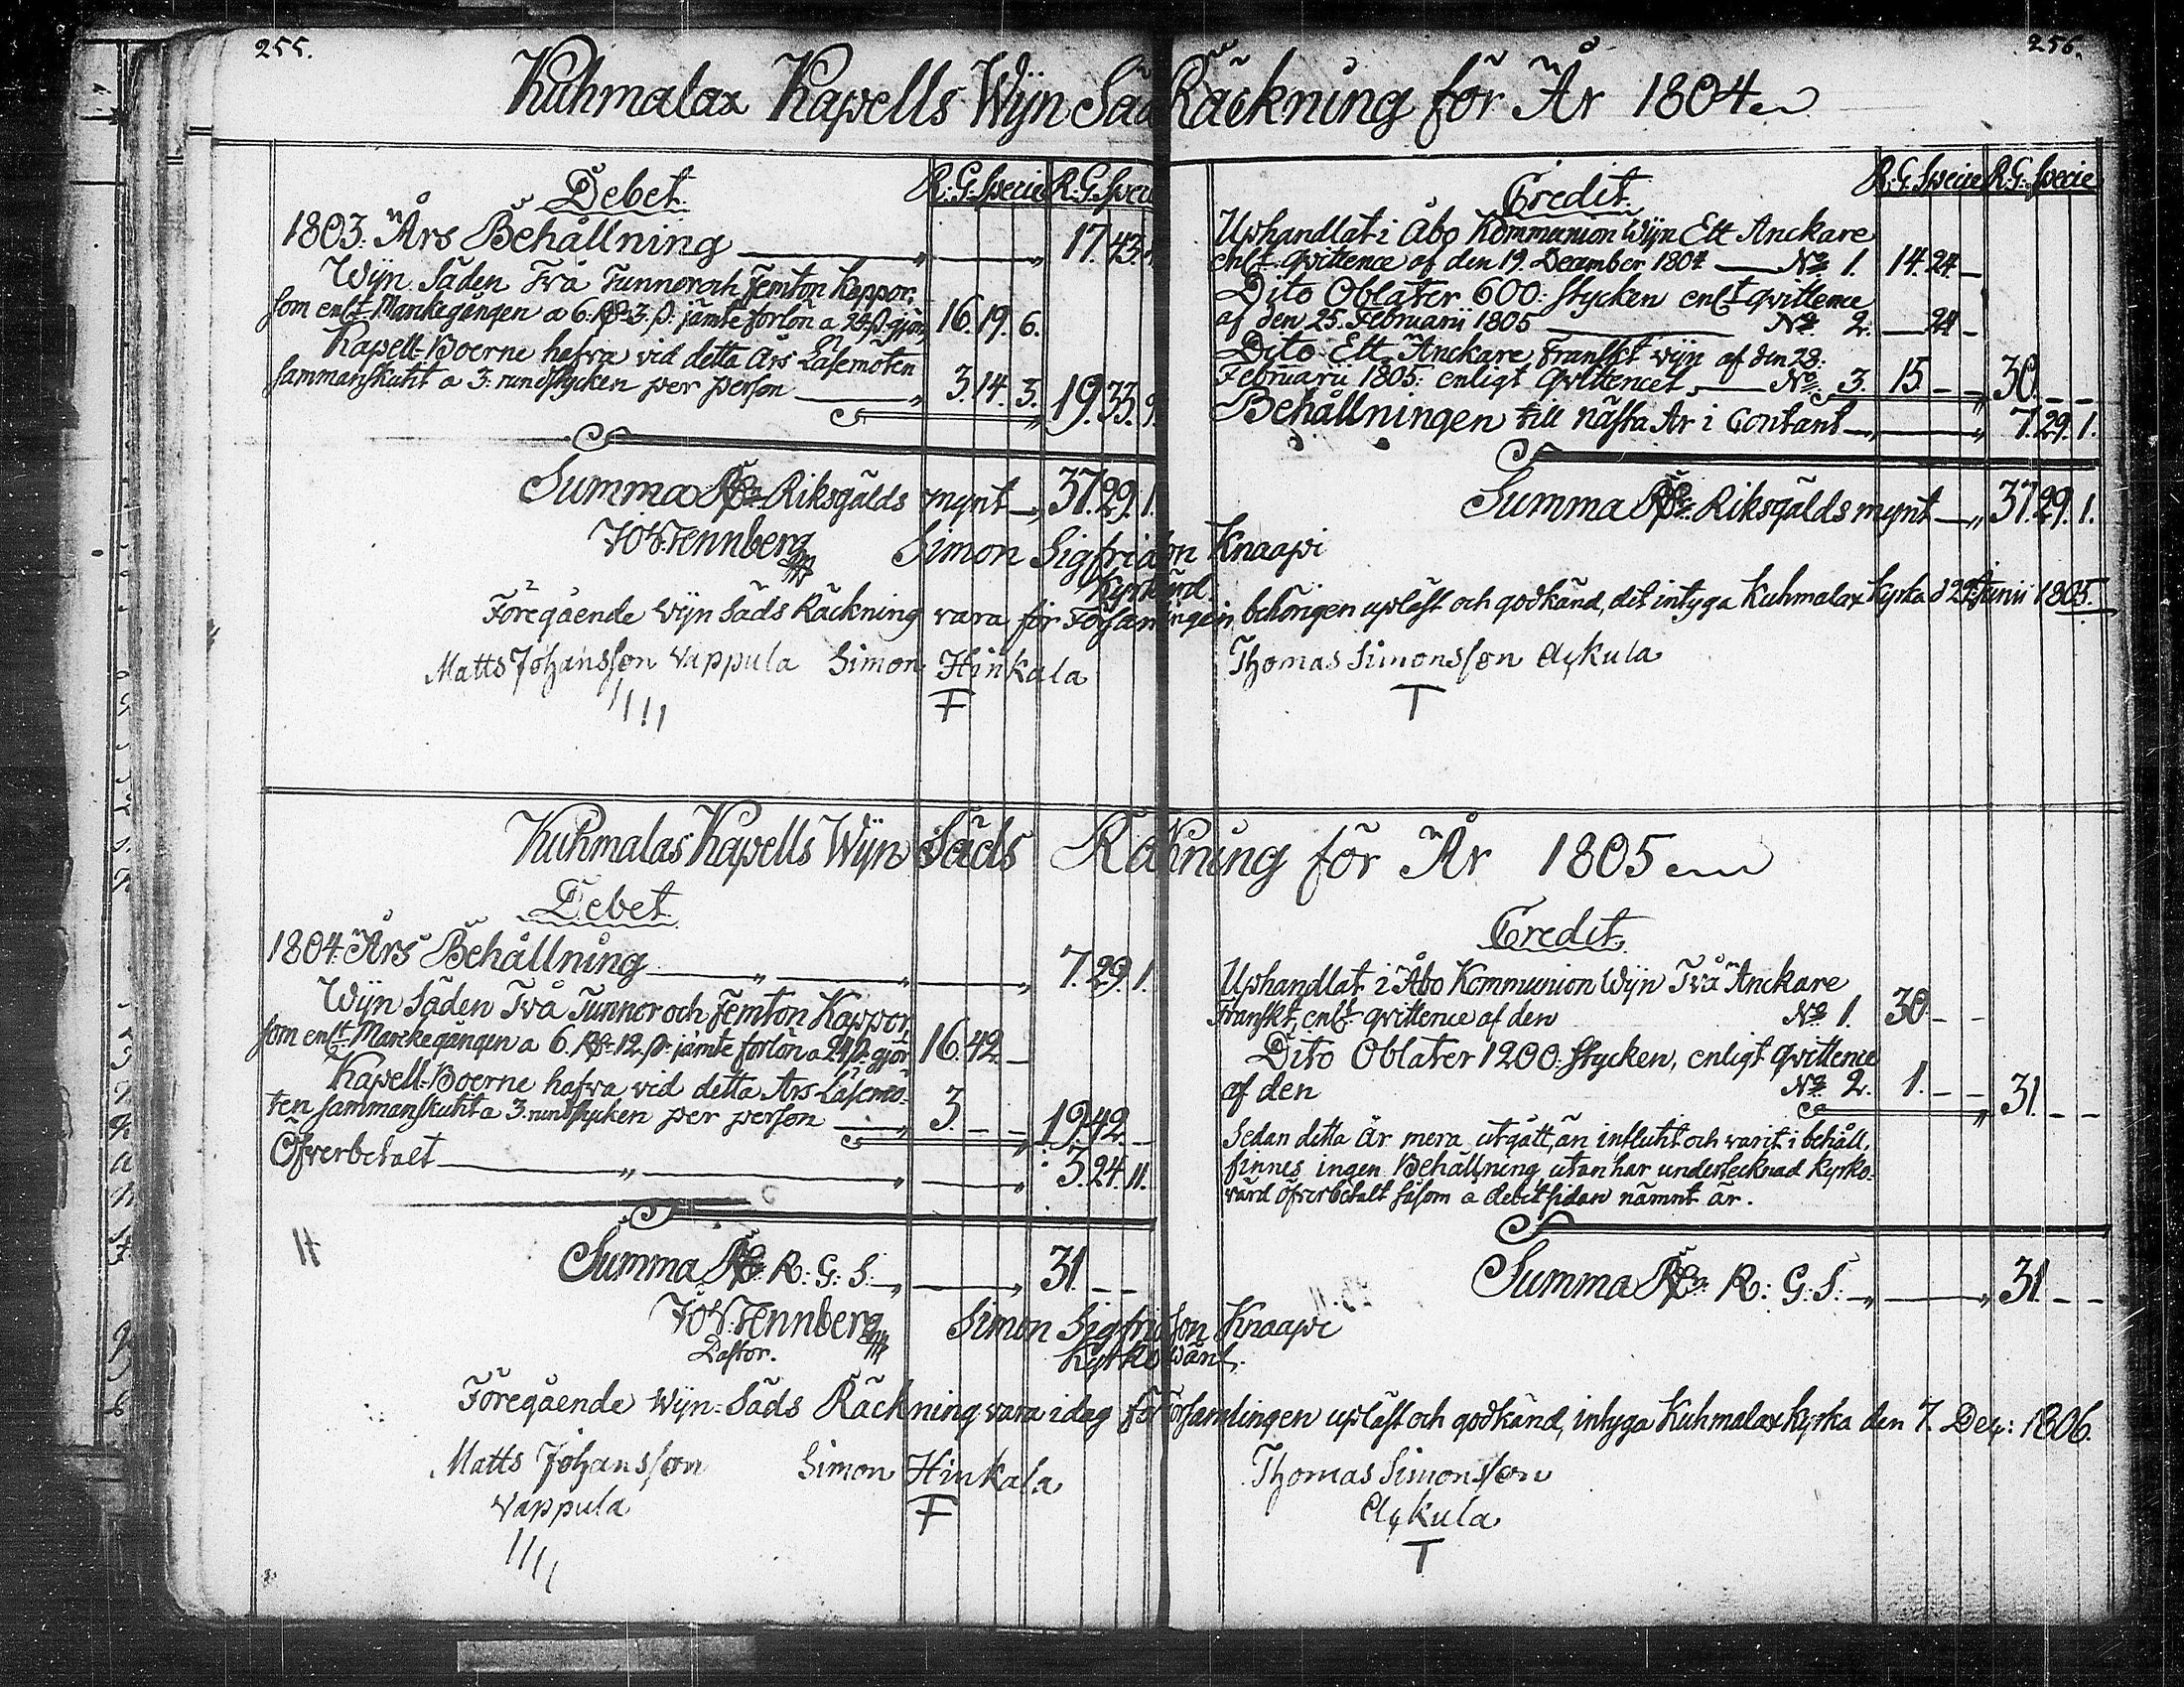 255.
256.
Kuhmalax Kapells Wijn Säds Räckning för År 1804
Debet.
R:G: Specie R:G: Specie
1803: Års Behållning 17. 43. 4.
Wijn Säden Två Tunnor och Femton Kappor,
som enl:t Marckegången a 6. Rd: 3. ß: jämte forlön a 24. ß. gjör 16. 19. 6.
Kapell-Boerne hafva vid detta Års Läsemöten
sammanskutit a 3: rundstycken per person 3. 14. 3. 19. 33. 9.
Summa Rd: Riksgälds mynt 37. 29. 1.
Credit.
R:G: Specie R:G: Specie
Uphandlat i Åbo Kommunion Wijn Ett Anckare
enl:t qvittence af den 19. December 1804 No 1. 14. 24 –
Dito Oblater 600: stycken enl:t qvittence
af den 25. Februarii 1805 No 2. – 24 –
Dito Ett Anckare Franskt wijn af den 28:
Februarii 1805: enligt Qvittencet No 3. 15. – – 30. – –
Behållningen till nästa År i Contant 7. 29. 1.
Summa Rd: Riksgälds mynt 37. 29. 1.
Tennberg Simon Sigfridson Knaapi
Kyrkvärd.
Föregående Wijn Säds Räckning vara för Församlingen behörigen upläst och godkänd, det intyga Kuhmalax Kyrka d 29 Junii 1805.
Matts Johansson Vappula Simon Hinkala Thomas Simonsson Äykula
F T
Kuhmalax Kapells Wijn Säds Räkning för År 1805
Debet.
1804: Års Behållning 7. 29. 1.
Wijn Säden Två Tunnor och Femton Kappor,
som enl:t Marckegången a 6. Rd: 12. ß: jämte forlön a 24 ß. gjör 16. 42. –
Kapell-Boerne hafva vid detta Års Läsemö-
ten sammanskutit a 3. rundstycken per person 3. – – 19. 42. –
Öfverbetalt 3. 24. 11.
Summa Rd: R: G: S: 31. – –
Credit.
Uphandlat i Åbo Kommunion Wijn Två Anckare
Franskt, enl:t qvittence af den No 1. 30 – –
Dito Oblater 1200: stycken, enligt qvittence
af den No 2. 1. – – 31. – –
Sedan detta År mera utgått, än influtit och varit i behåll,
finnes ingen Behållning, utan har undertecknad Kyrko-
värd öfverbetalt såsom å debet sidan nämnt är.
Summa Rd: R: G: S: 31. – –
Tennberg Simon Sigfridson Knaapi
Pastor. Kyrkowärd.
Föregående Wijn-Säds Räckning vara i dag för Församlingen upläst och godkänd, intyga Kuhmalax Kyrka den 7. Dec: 1806.
Matts Johansson Simon Hinkala Thomas Simonsson
Vappula F Äykula
T